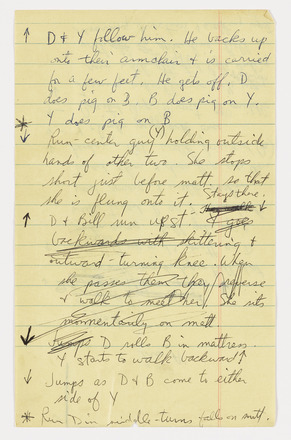 ↑ D & Y follow him. He backs up
onto their armchair & is carried
for a few feet. He gets off. D
does pig on B. B does pig on Y.
* Y does pig on B
Run - center guy (Y) holding outside
hands of other two. She stops
short just before matt so that
she is flung onto it. Stays there.
↑ D & Bill run upst ↓
backwards with skittering &
outward-turning knee. When
she passes them they reverse
& walk to meet her. She sits
momentarily on matt
↓ Jumps D rolls B in mattress.
Y starts to walk backward ↑
↓ Jumps as D & B come to either
side of Y
* Run D in middle - turns falls on matt.